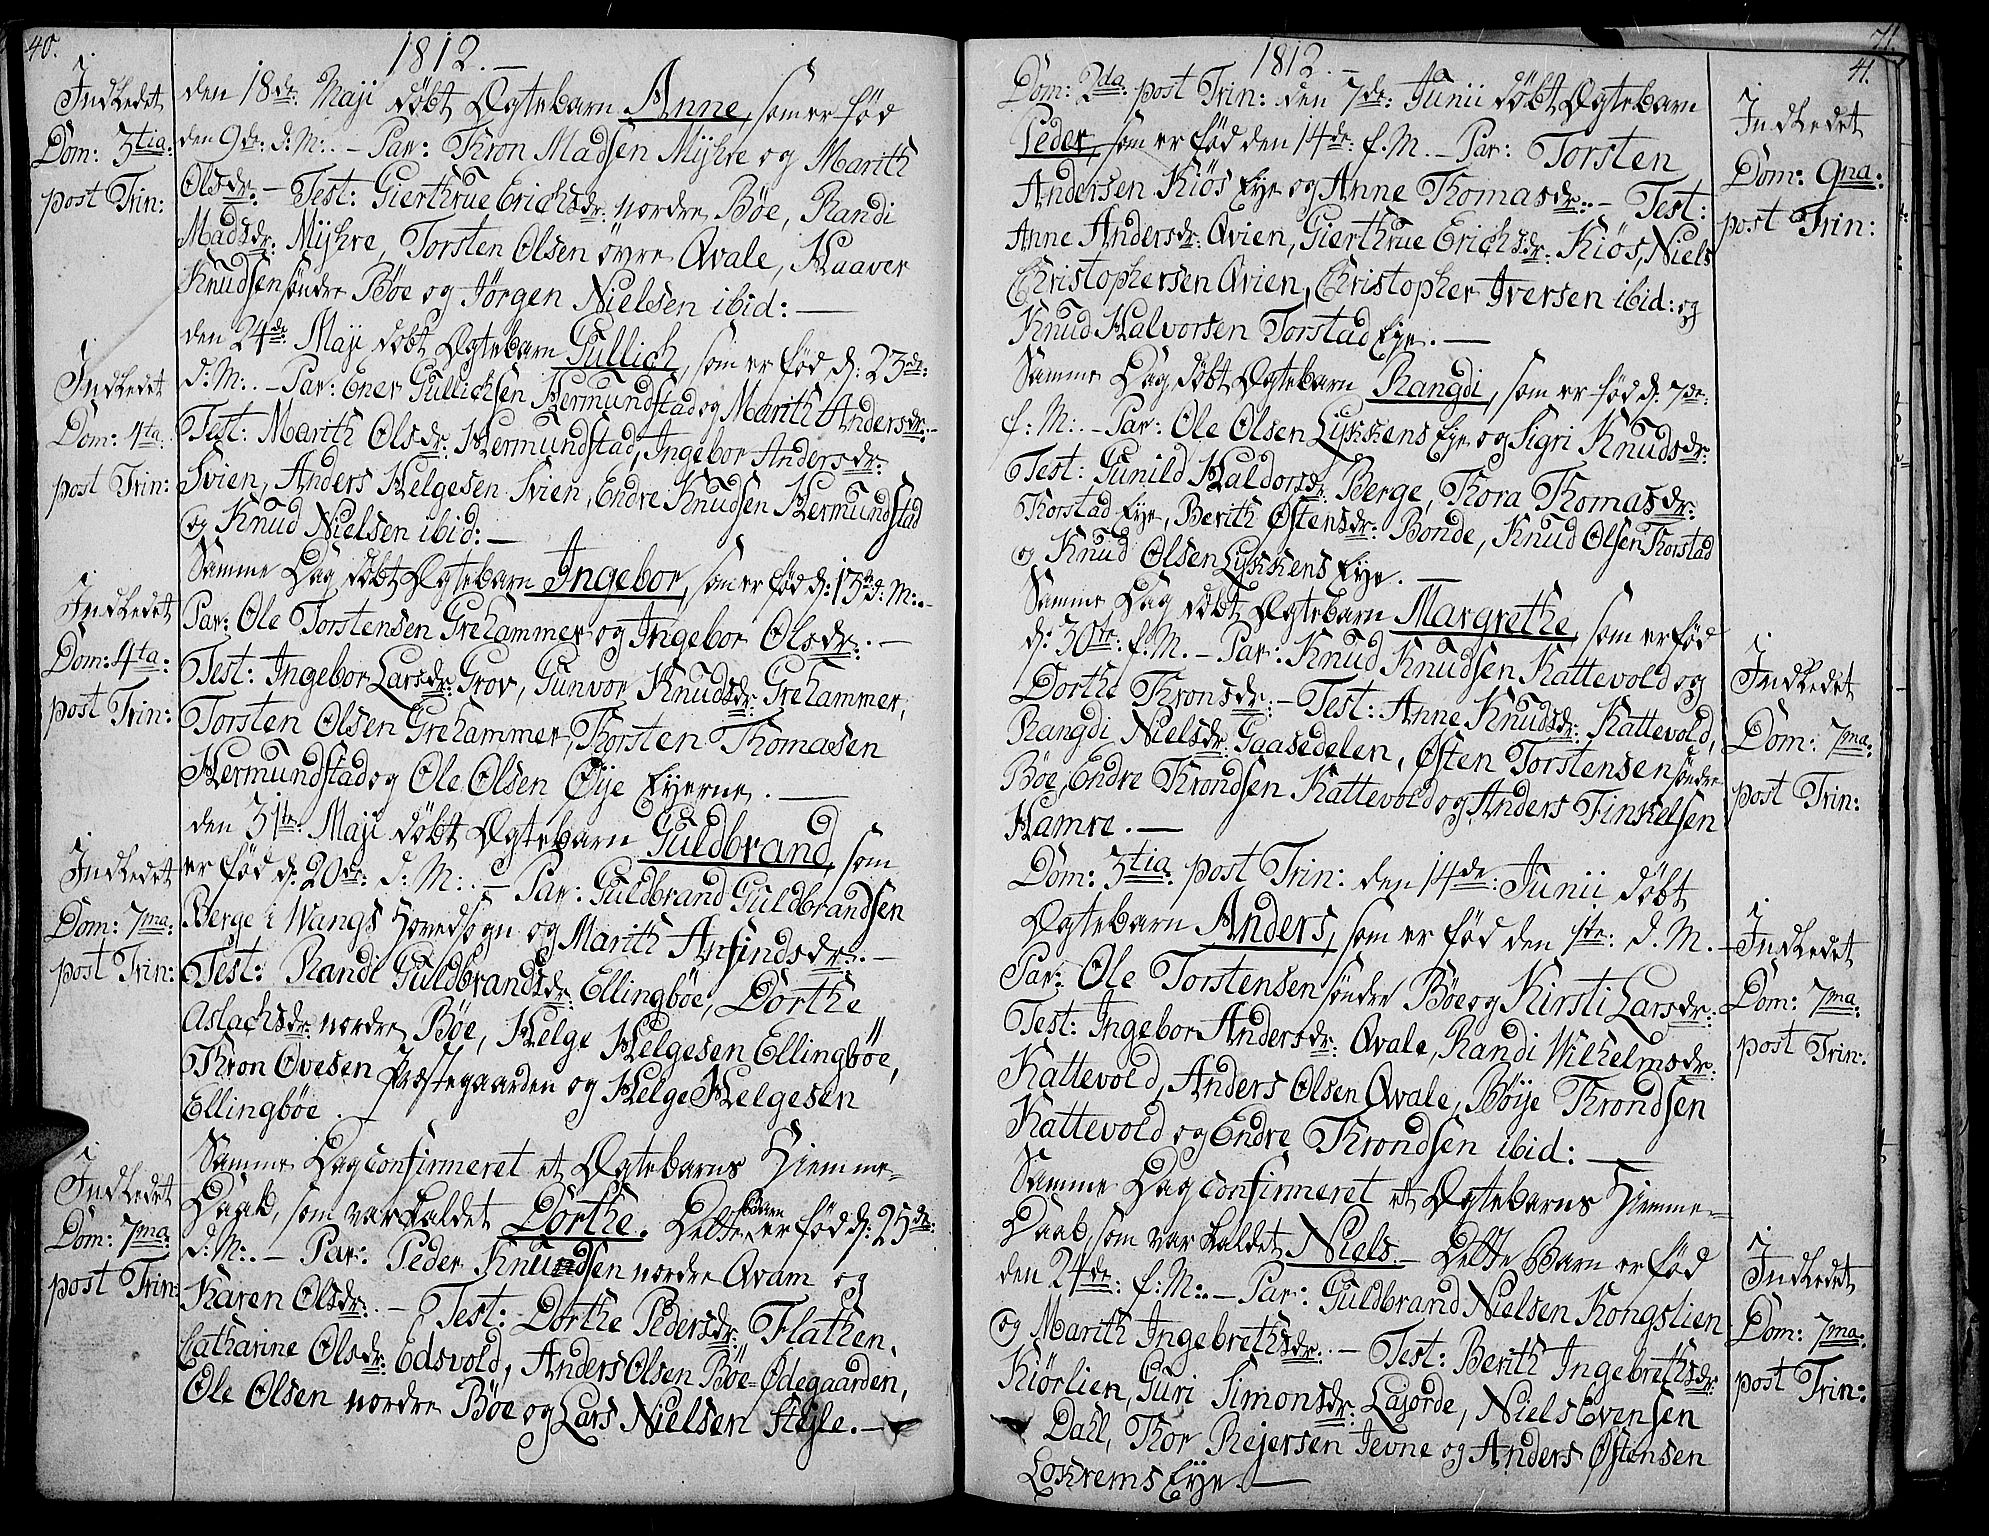 40.
1812. —
Indledet
Dom: 3tia:
post Trin:
den 18de: Maji döbt Ægtebarn Anne, som er fød
den 9de: d: M:. – Par: Thron Madsen Mÿhre og Marith
Olsdr:. – Test: Gierthrue Erichsdr: nordre Böe, Randi
Madsdr: Mÿhre, Torsten Olsen övre Qvale, Haaver
Knudsen söndre Böe og Jörgen Nielsen ibid: —
Indledet
Dom: 4ta:
post Trin:
den 24de Maji döbt Ægtebarn Gullich, som er fød d: 23de:
d: M:. – Par: Ener Gullichsen Hermundstad og Marith Andersdr:. –
Test: Marith Olsdr: Hermundstad, Ingebor Andersdr:
Svien, Anders Helgesen Svien, Endre Knudsen Hermundstad
og Knud Nielsen ibid: —
Indledet
Dom: 4ta:
post Trin:
Samme Dag döbt Ægtebarn Ingebor, som er fød d: 13de d: M:. –
Par: Ole Torstensen Grehammer og Ingebor Olsdr:. –
Test: Ingebor Larsdr: Grov, Gunvor Knudsdr: Grehammer,
Torsten Olsen Grehammer, Thorsten Thomasen
Hermundstad og Ole Olsen Øije Eyerne. —
Indledet
Dom: 7ma:
post Trin:
den 31te: Maji döbt Ægtebarn Guldbrand, som
er fød d: 20de: d: M:. – Par: Guldbrand Guldbrandsen
Berge i Wangs Hovedsogn og Marith Anfindsdr:. –
Test: Randi Guldbrandsdr: Ellingböe, Dorthe
Aslachsdr: nordre Böe, Helge Helgesen Ellingböe,
Thron Ovesen Præstegaarden og Helge Helgesen
Ellingböe.
Indledet
Dom: 7ma:
post Trin:
Samme Dag confirmeret et Ægtebarns Hiemme-
Daab, som var kaldet Dorthe. Dette Barn er fød d: 25de:
d: M:. – Par: Peder Knudsen nordre Qvam og
Karen Olsdr:. – Test: Dorthe Pedersdr: Flathen,
Catharine Olsdr: Edsvold, Anders Olsen Böe=Ødegaarden,
Ole Olsen nordre Böe og Lars Nielsen Stejle. —
71.
41.
1812. —
Indledet
Dom: 9na:
post Trin:
Dom: 2da: post Trin: den 7de: Junii döbt Ægtebarn
Peder, som er fød den 14de: f. M. – Par: Torsten
Andersen Kiös Eye og Anne Thomasdr:. – Test:
Anne Andersdr: Qvien, Gierthrue Erichsdr: Kiös, Niels
Christophersen Qvien, Christopher Iversen ibid: og
Knud Halvorsen Torstad Eye. —
Samme Dag döbt Ægtebarn Rangdi, som er fød d: 7de:
f: M:. – Par: Ole Olsen Lykkens Eye og Sigri Knudsdr:
Test: Gunild Haldorsdr: Berge, Thora Thomasdr:
Thorstad Eye, Berith Østensdr: Bonde, Knud Olsen Thorstad
og Knud Olsen Lykkens Eye. —
Indledet
Dom: 7ma:
post Trin:
Samme Dag döbt Ægtebarn Margrethe, som er fød
d: 30te: f. M. – Par: Knud Knudsen Kattevold og
Dorthe Thronsdr:. – Test: Anne Knudsdr: Kattevold,
Rangdi Nielsdr: Gaasedelen, Østen Torstensen söndre
Böe, Endre Throndsen Kattevold og Anders Finkelsen
Hamre. —
Indledet
Dom: 7ma:
post Trin:
Dom: 3tia: post Trin: den 14de: Junii döbt
Ægtebarn Anders, som er fød den 1ste: d. M. –
Par: Ole Torstensen söndre Böe og Kirsti Larsdr:
Test: Ingebor Andersdr: Qvale, Randi Wilhelmsdr:
Kattevold, Anders Olsen Qvale, Böije Throndsen
Kattevold og Endre Throndsen ibid: —
Indledet
Dom: 7ma:
post Trin:
Samme Dag confirmeret et Ægtebarns Hiemme-
Daab, som var kaldet Niels. – Dette Barn er fød
den 24de: f: M:. – Par: Guldbrand Nielsen Kongslien
og Marith Ingebrethsdr:. – Test: Berith Ingebrethsdr:
Kiörlien, Guri Simonsdr: Lajorde, Niels Evensen
Dahl, Thor Rejersen Jevne og Anders Østensen
Lokrems Eye. —